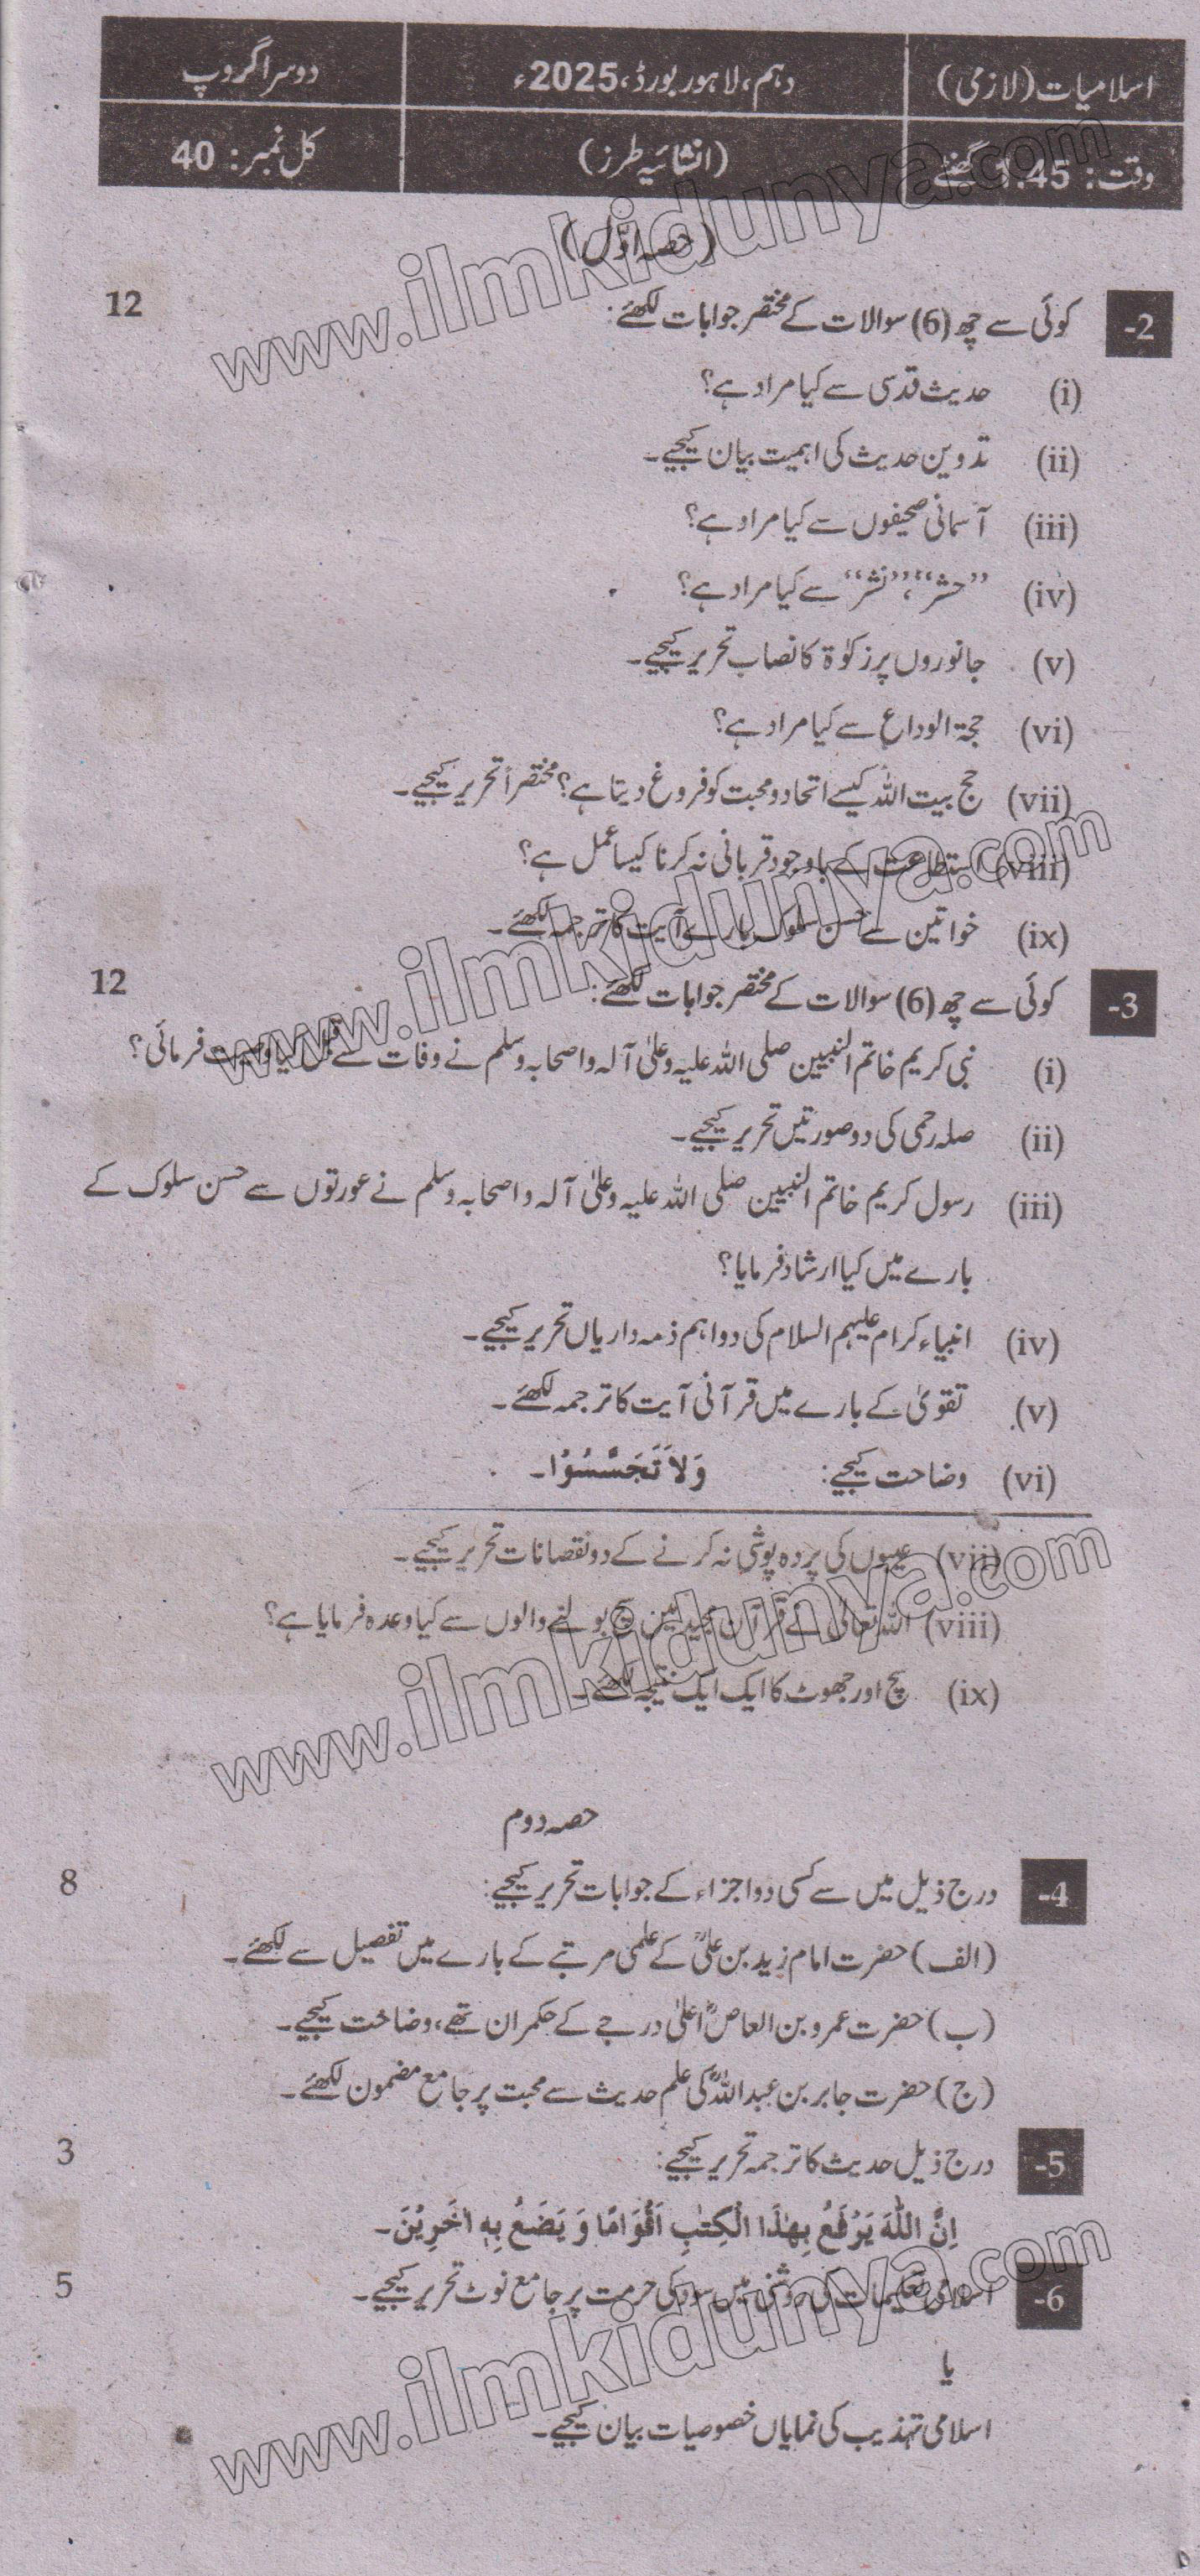 اسلامیات (لازمی) دہم، لاہور بورڈ، 2025ء دوسرا گروپ
وقت: 1:45 گھنٹے (انشائیہ طرز) کل نمبر: 40
(حصہ اوّل)
2- کوئی سے چھ (6) سوالات کے مختصر جوابات لکھئے: 12
(i) حدیث قدسی سے کیا مراد ہے؟
(ii) تدوین حدیث کی اہمیت بیان کیجیے۔
(iii) آسمانی صحیفوں سے کیا مراد ہے؟
(iv) ”حشر“، ”نشر“ سے کیا مراد ہے؟
(v) جانوروں پر زکوٰۃ کا نصاب تحریر کیجیے۔
(vi) حجۃ الوداع سے کیا مراد ہے؟
(vii) حج بیت اللہ کیسے اتحاد و محبت کو فروغ دیتا ہے؟ مختصراً تحریر کیجیے۔
(viii) استطاعت کے باوجود قربانی نہ کرنا کیسا عمل ہے؟
(ix) خواتین سے حسن سلوک بارے آیت کا ترجمہ لکھئے۔
3- کوئی سے چھ (6) سوالات کے مختصر جوابات لکھئے: 12
(i) نبی کریم خاتم النبیین صلی اللہ علیہ وعلیٰ آلہ واصحابہ وسلم نے وفات سے قبل کیا وصیت فرمائی؟
(ii) صلہ رحمی کی دو صورتیں تحریر کیجیے۔
(iii) رسول کریم خاتم النبیین صلی اللہ علیہ وعلیٰ آلہ واصحابہ وسلم نے عورتوں سے حسن سلوک کے
بارے میں کیا ارشاد فرمایا؟
(iv) انبیاء کرام علیہم السلام کی دو اہم ذمہ داریاں تحریر کیجیے۔
(v) تقویٰ کے بارے میں قرآنی آیت کا ترجمہ لکھئے۔
(vi) وضاحت کیجیے: وَلَا تَجَسَّسُوْا۔
(vii) عیبوں کی پردہ پوشی نہ کرنے کے دو نقصانات تحریر کیجیے۔
(viii) اللہ تعالیٰ نے قرآن مجید میں سچ بولنے والوں سے کیا وعدہ فرمایا ہے؟
(ix) سچ اور جھوٹ کا ایک ایک نتیجہ لکھئے۔
حصہ دوم
4- درج ذیل میں سے کسی دو اجزاء کے جوابات تحریر کیجیے: 8
(الف) حضرت امام زید بن علیؒ کے علمی مرتبے کے بارے میں تفصیل سے لکھئے۔
(ب) حضرت عمرو بن العاصؓ اعلیٰ درجے کے حکمران تھے، وضاحت کیجیے۔
(ج) حضرت جابر بن عبداللہؓ کی علم حدیث سے محبت پر جامع مضمون لکھئے۔
5- درج ذیل حدیث کا ترجمہ تحریر کیجیے: 3
اِنَّ اللّٰهَ يَرْفَعُ بِهٰذَا الْكِتٰبِ اَقْوَامًا وَ يَضَعُ بِهٖ اٰخَرِيْنَ۔
6- اسلامی تعلیمات کی روشنی میں سود کی حرمت پر جامع نوٹ تحریر کیجیے۔ 5
یا
اسلامی تہذیب کی نمایاں خصوصیات بیان کیجیے۔
www.ilmkidunya.com
www.ilmkidunya.com
www.ilmkidunya.com
www.ilmkidunya.com